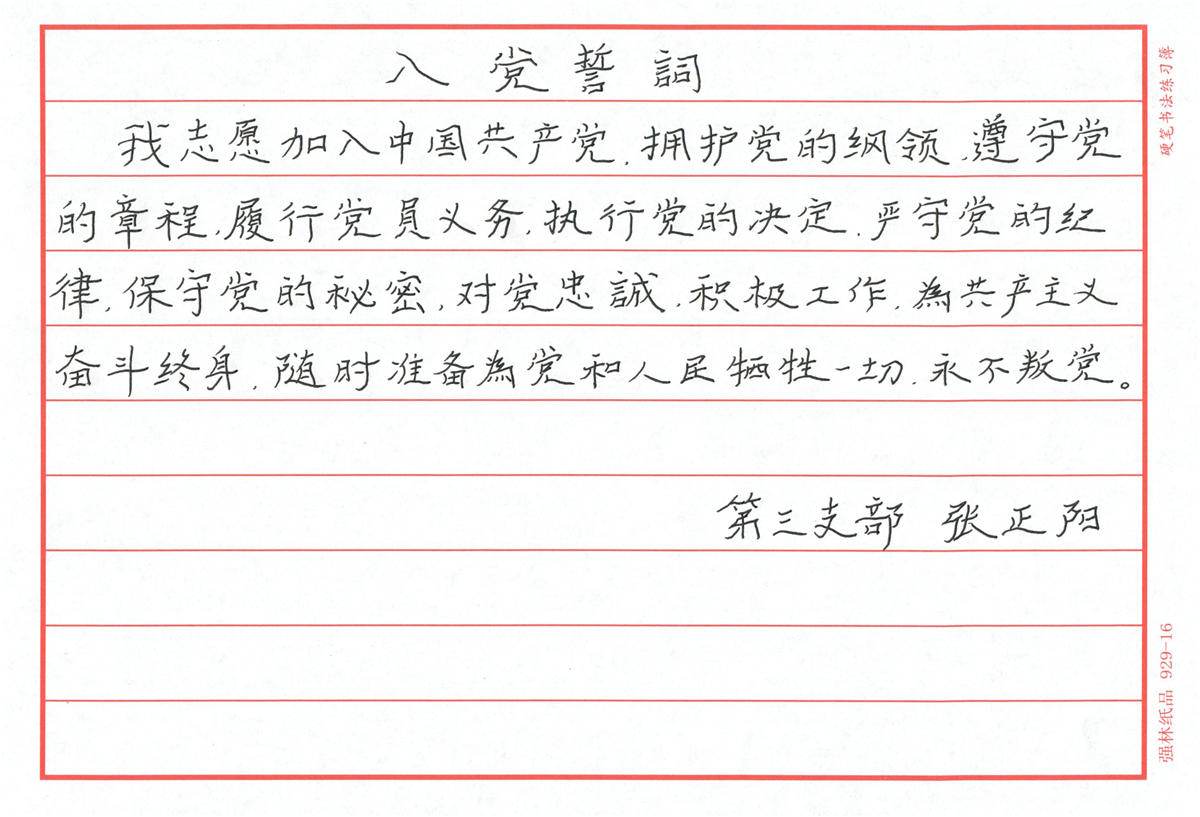 入党誓詞
我志愿加入中国共产党,拥护党的纲领,遵守党
的章程,履行党員义务,执行党的决定,严守党的纪
律,保守党的秘密,对党忠誠,积极工作,為共产主义
奋斗终身,随时准备為党和人民牺牲一切,永不叛党。
第三支部 张正阳
硬笔书法练习簿
强林纸品 929-16